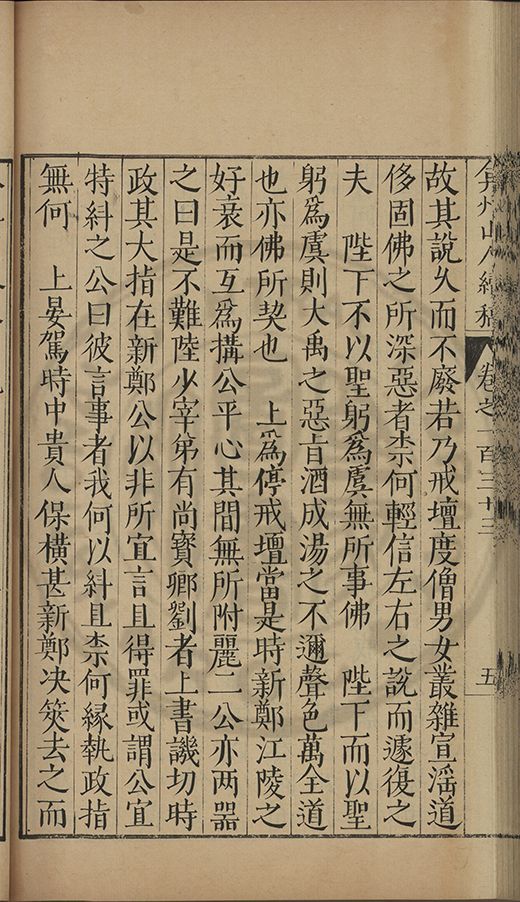 弇州山人續稿 卷之一百三十三 五
故其說乆而不廢若乃戒壇度僧男女叢雜宣滛道
侈固佛之所深惡者柰何輕信左右之說而遽復之
夫 陛下不以聖躬爲虞無所事佛 陛下而以聖
躬爲虞則大禹之惡旨酒成湯之不邇聲色萬全道
也亦佛所契也 上爲停戒壇當是時新鄭江陵之
好衰而互爲搆公平心其間無所附麗二公亦两噐
之曰是不難陸少宰弟有尚寳卿劉者上書譏切時
政其大指在新鄭公以非所宜言且得罪或謂公宜
特糾之公曰彼言事者我何以糾且柰何緣執政指
無何 上晏駕時中貴人保橫甚新鄭决筴去之而